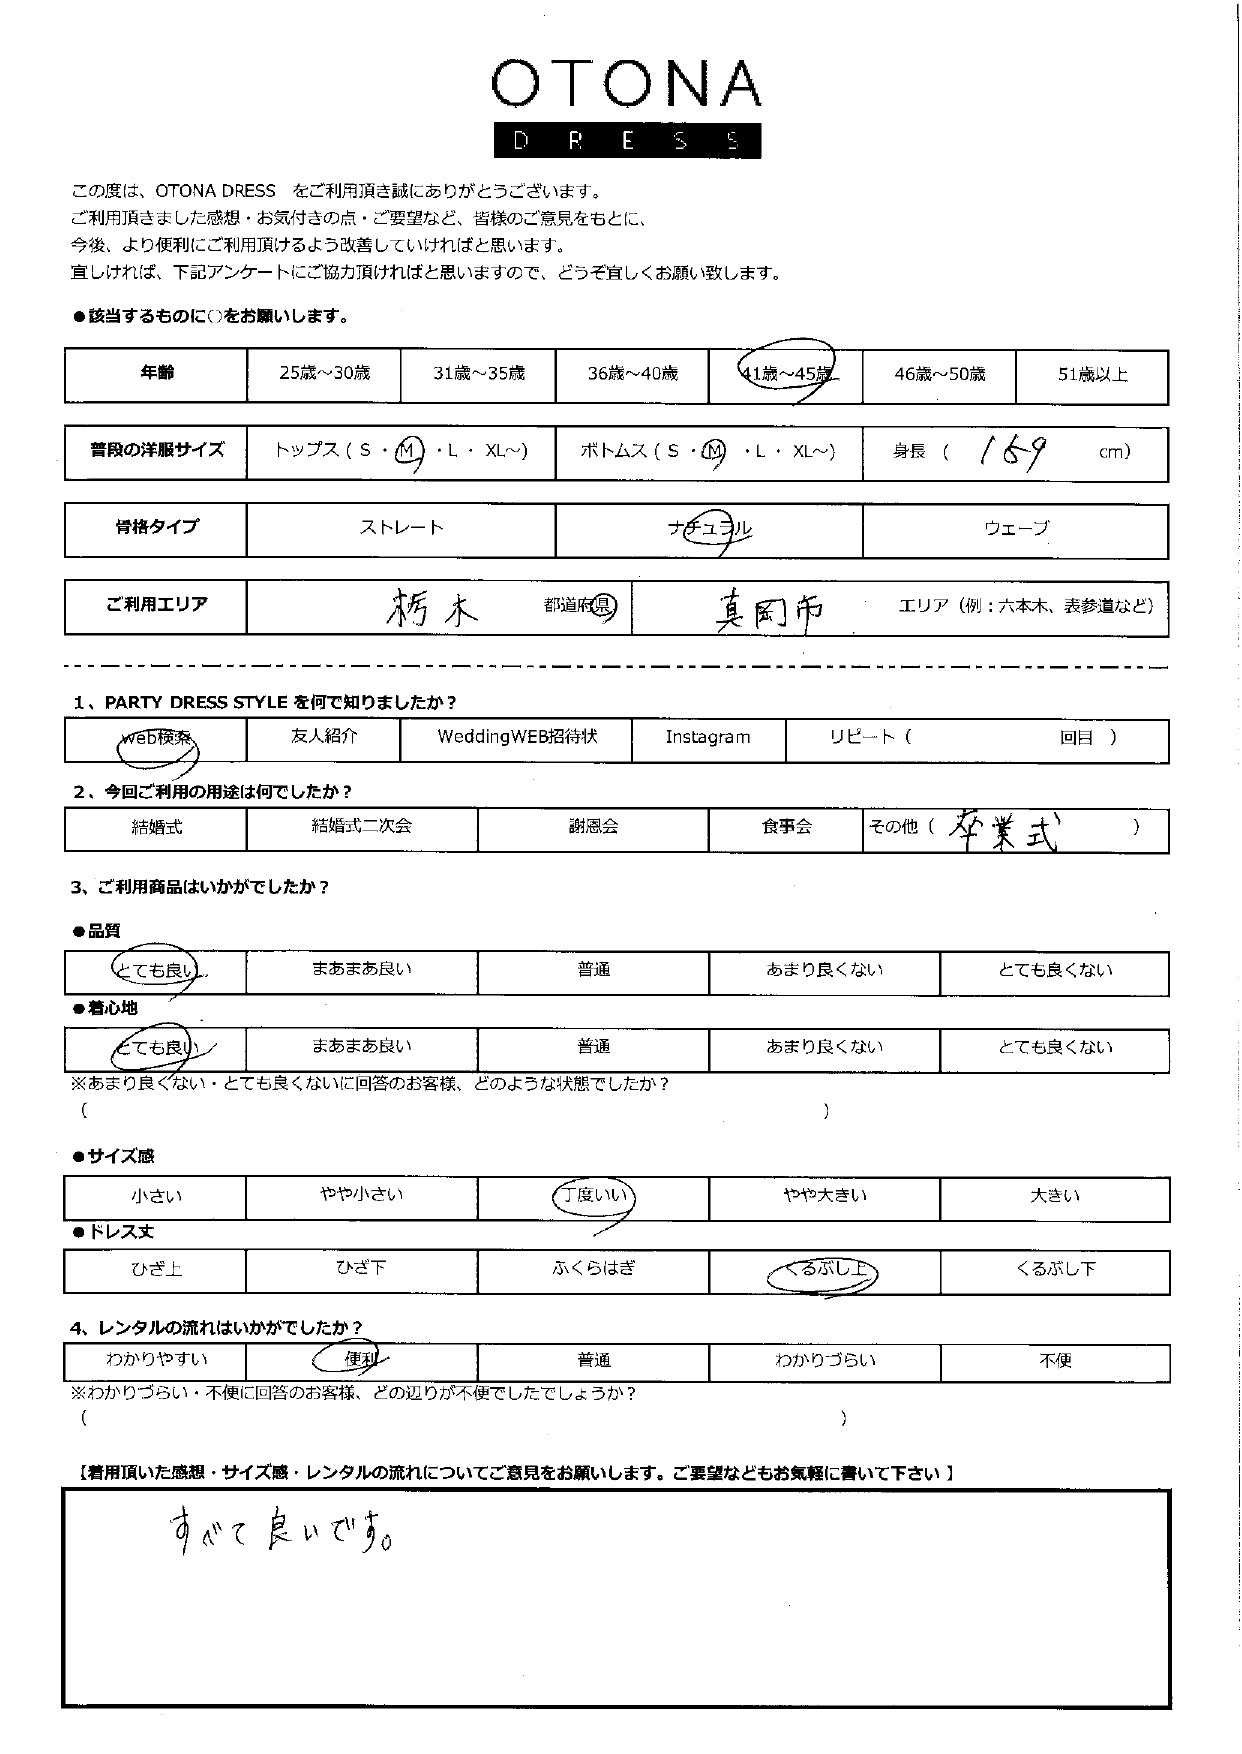 OTONA
DRESS
この度は、OTONA DRESS をご利用頂き誠にありがとうございます。
ご利用頂きました感想・お気付きの点・ご要望など、皆様のご意見をもとに、
今後、より便利にご利用頂けるよう改善していければと思います。
宜しければ、下記アンケートにご協力頂ければと思いますので、どうぞ宜しくお願い致します。
●該当するものに○をお願いします。
年齢 25歳～30歳 31歳～35歳 36歳～40歳 41歳～45歳 46歳～50歳 51歳以上
普段の洋服サイズ トップス ( S ・ M ・ L ・ XL～) ボトムス ( S ・ M ・ L ・ XL～) 身長 ( 169 cm)
骨格タイプ ストレート ナチュラル ウェーブ
ご利用エリア 栃木 都道府県 真岡市 エリア（例：六本木、表参道など）
1、PARTY DRESS STYLE を何で知りましたか？
web検索 友人紹介 WeddingWEB招待状 Instagram リピート（ 回目 ）
2、今回ご利用の用途は何でしたか？
結婚式 結婚式二次会 謝恩会 食事会 その他（ 卒業式 ）
3、ご利用商品はいかがでしたか？
●品質
とても良い まあまあ良い 普通 あまり良くない とても良くない
●着心地
とても良い まあまあ良い 普通 あまり良くない とても良くない
※あまり良くない・とても良くないに回答のお客様、どのような状態でしたか？
( )
●サイズ感
小さい やや小さい 丁度いい やや大きい 大きい
●ドレス丈
ひざ上 ひざ下 ふくらはぎ くるぶし上 くるぶし下
4、レンタルの流れはいかがでしたか？
わかりやすい 便利 普通 わかりづらい 不便
※わかりづらい・不便に回答のお客様、どの辺りが不便でしたでしょうか？
( )
【着用頂いた感想・サイズ感・レンタルの流れについてご意見をお願いします。ご要望などもお気軽に書いて下さい 】
すべて良いです。